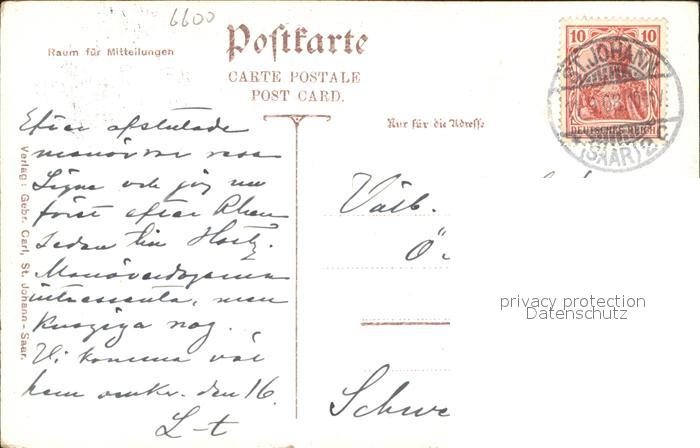 6600
Raum für Mitteilungen
Postkarte
CARTE POSTALE
POST CARD.
Nur für die Adresse
10 10
ST. JOHANN
DEUTSCHES REICH
(SAAR) 2 C
Efter afslutade
manövrer resa
och jag nu
först efter Rhen
sedan till Hartz.
Manöverdagarna
intressanta, men
nog.
Vi komma väl
hem omkr. den 16.
L-t
Välb.
Ö
Schwe
Verlag: Gebr. Carl, St. Johann-Saar.
privacy protection
Datenschutz